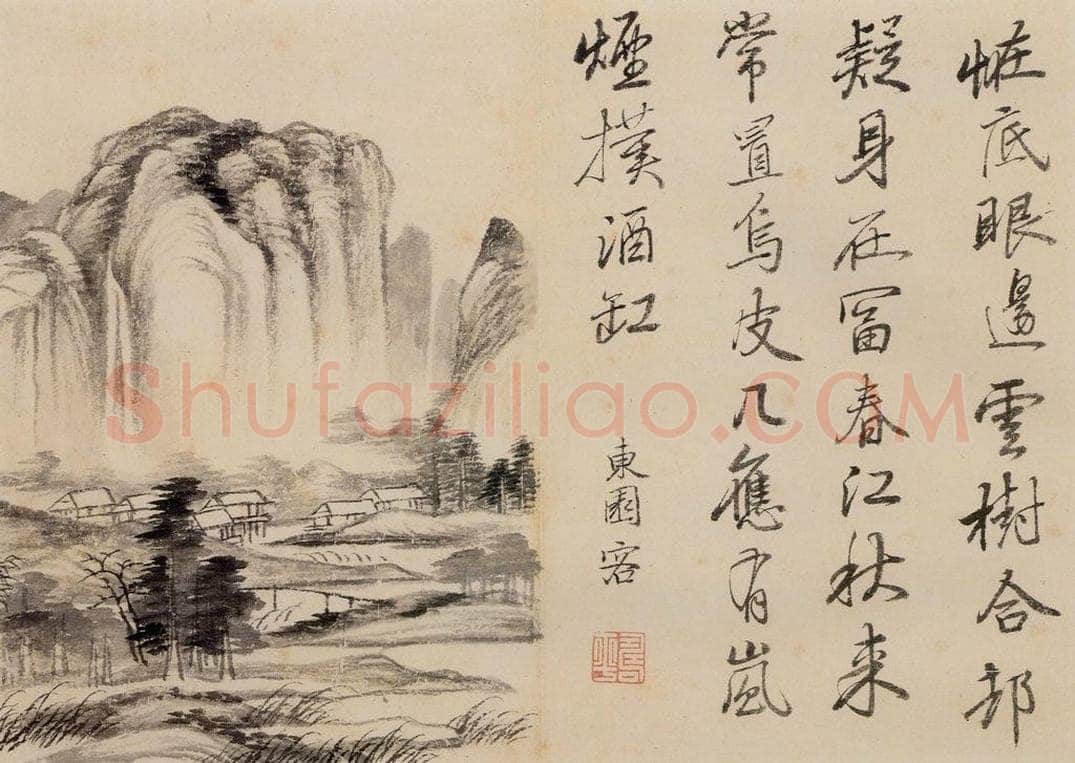 恠底眼邊雲樹合却
疑身在冨春江秋来
常置烏皮几應有嵐
煙撲酒缸
東園客
Shufaziliao.COM